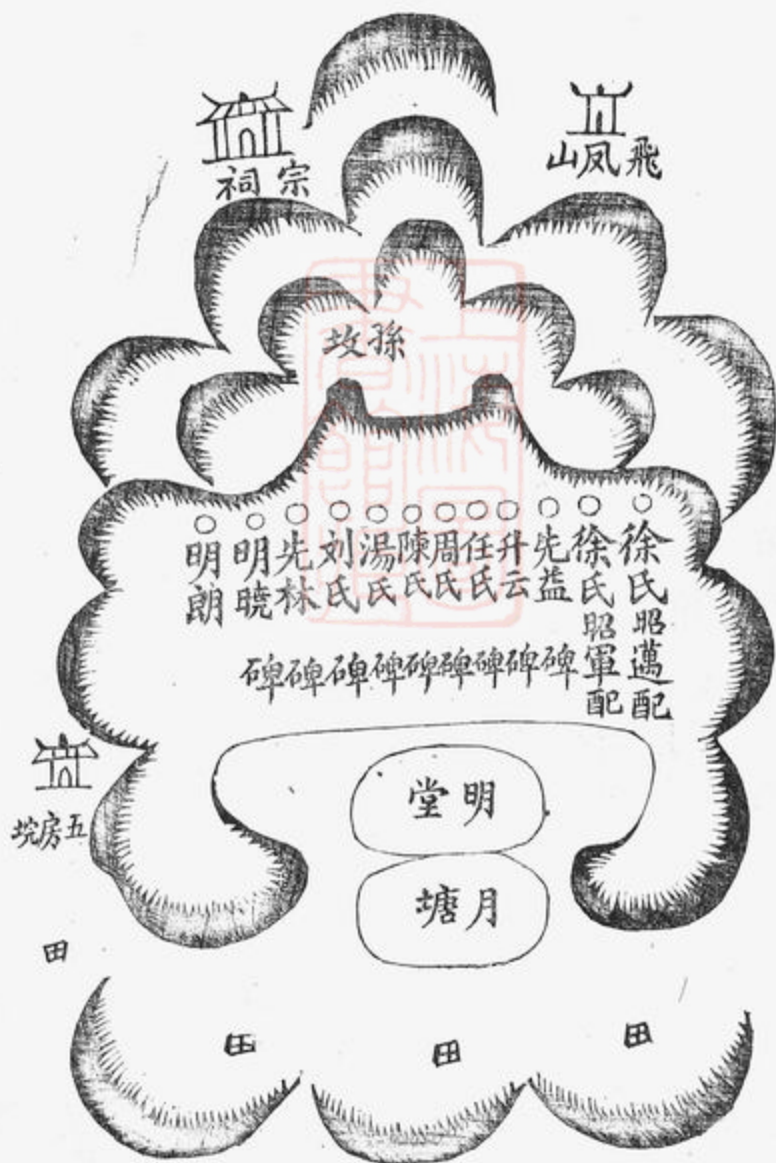 飛凤山
宗祠
孫坟
徐氏昭邁配
徐氏昭軍配
先益 碑
升云 碑
任氏 碑
周氏 碑
陳氏 碑
湯氏 碑
刘氏 碑
先林 碑
明曉 碑
明朗
明堂
月塘
五房塆
田
田
田
田